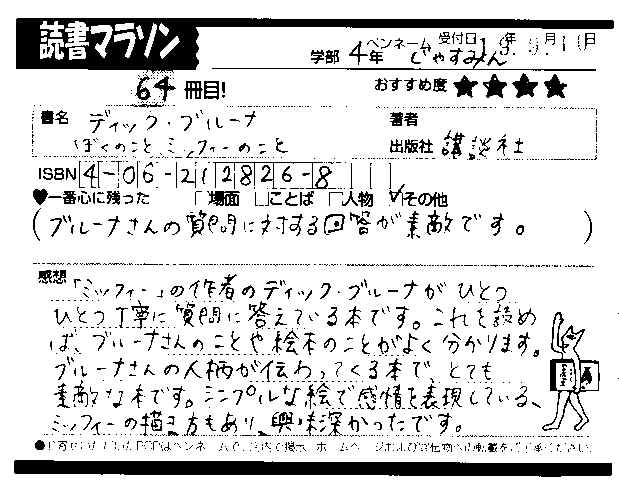 読書マラソン
学部 4年 ペンネーム じゃすみん 受付日 年 月 日
64 冊目! おすすめ度 ★★★★
書名 ディック・ブルーナ
ぼくのこと、ミッフィーのこと
著者
出版社 講談社
ISBN 4-06-212826-8
♥一番心に残った □場面 □ことば □人物 ☑その他
(ブルーナさんの質問に対する回答が素敵です。)
感想 「ミッフィー」の作者のディック・ブルーナがひとつ
ひとつ丁寧に質問に答えている本です。これを読め
ば、ブルーナさんのことや絵本のことがよく分かります。
ブルーナさんの人柄が伝わってくる本で、とても
素敵な本です。シンプルな絵で感情を表現している、
ミッフィーの描き方もあり、興味深かったです。